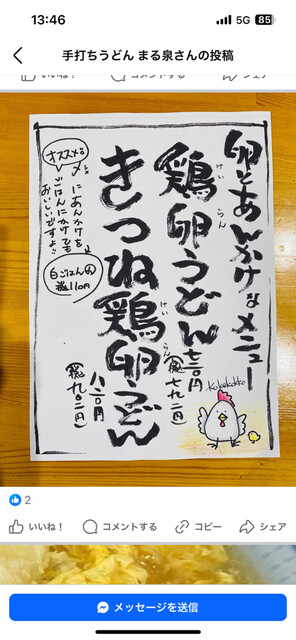 13:46
5G 85
手打ちうどん まる泉さんの投稿
いいね！ コメントする シェア
卵とあんかけなメニュー
鶏卵うどん
けい らん
七二〇円
(税込七九二円)
きつね鶏卵うどん
けい らん
八二〇円
(税込九〇二円)
オススメの〆
にあんかけを
ごはんにかけても
おいしいですよ!!
白ごはん小
税込110円
Kokekokko
2
いいね！ コメントする コピー シェア
メッセージを送信